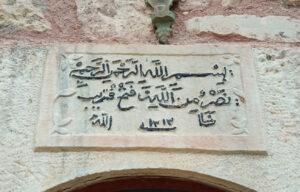 بسم الله الرحمن الرحيم
نصر من الله و فتح قريب
شا ١٣١٣ الله